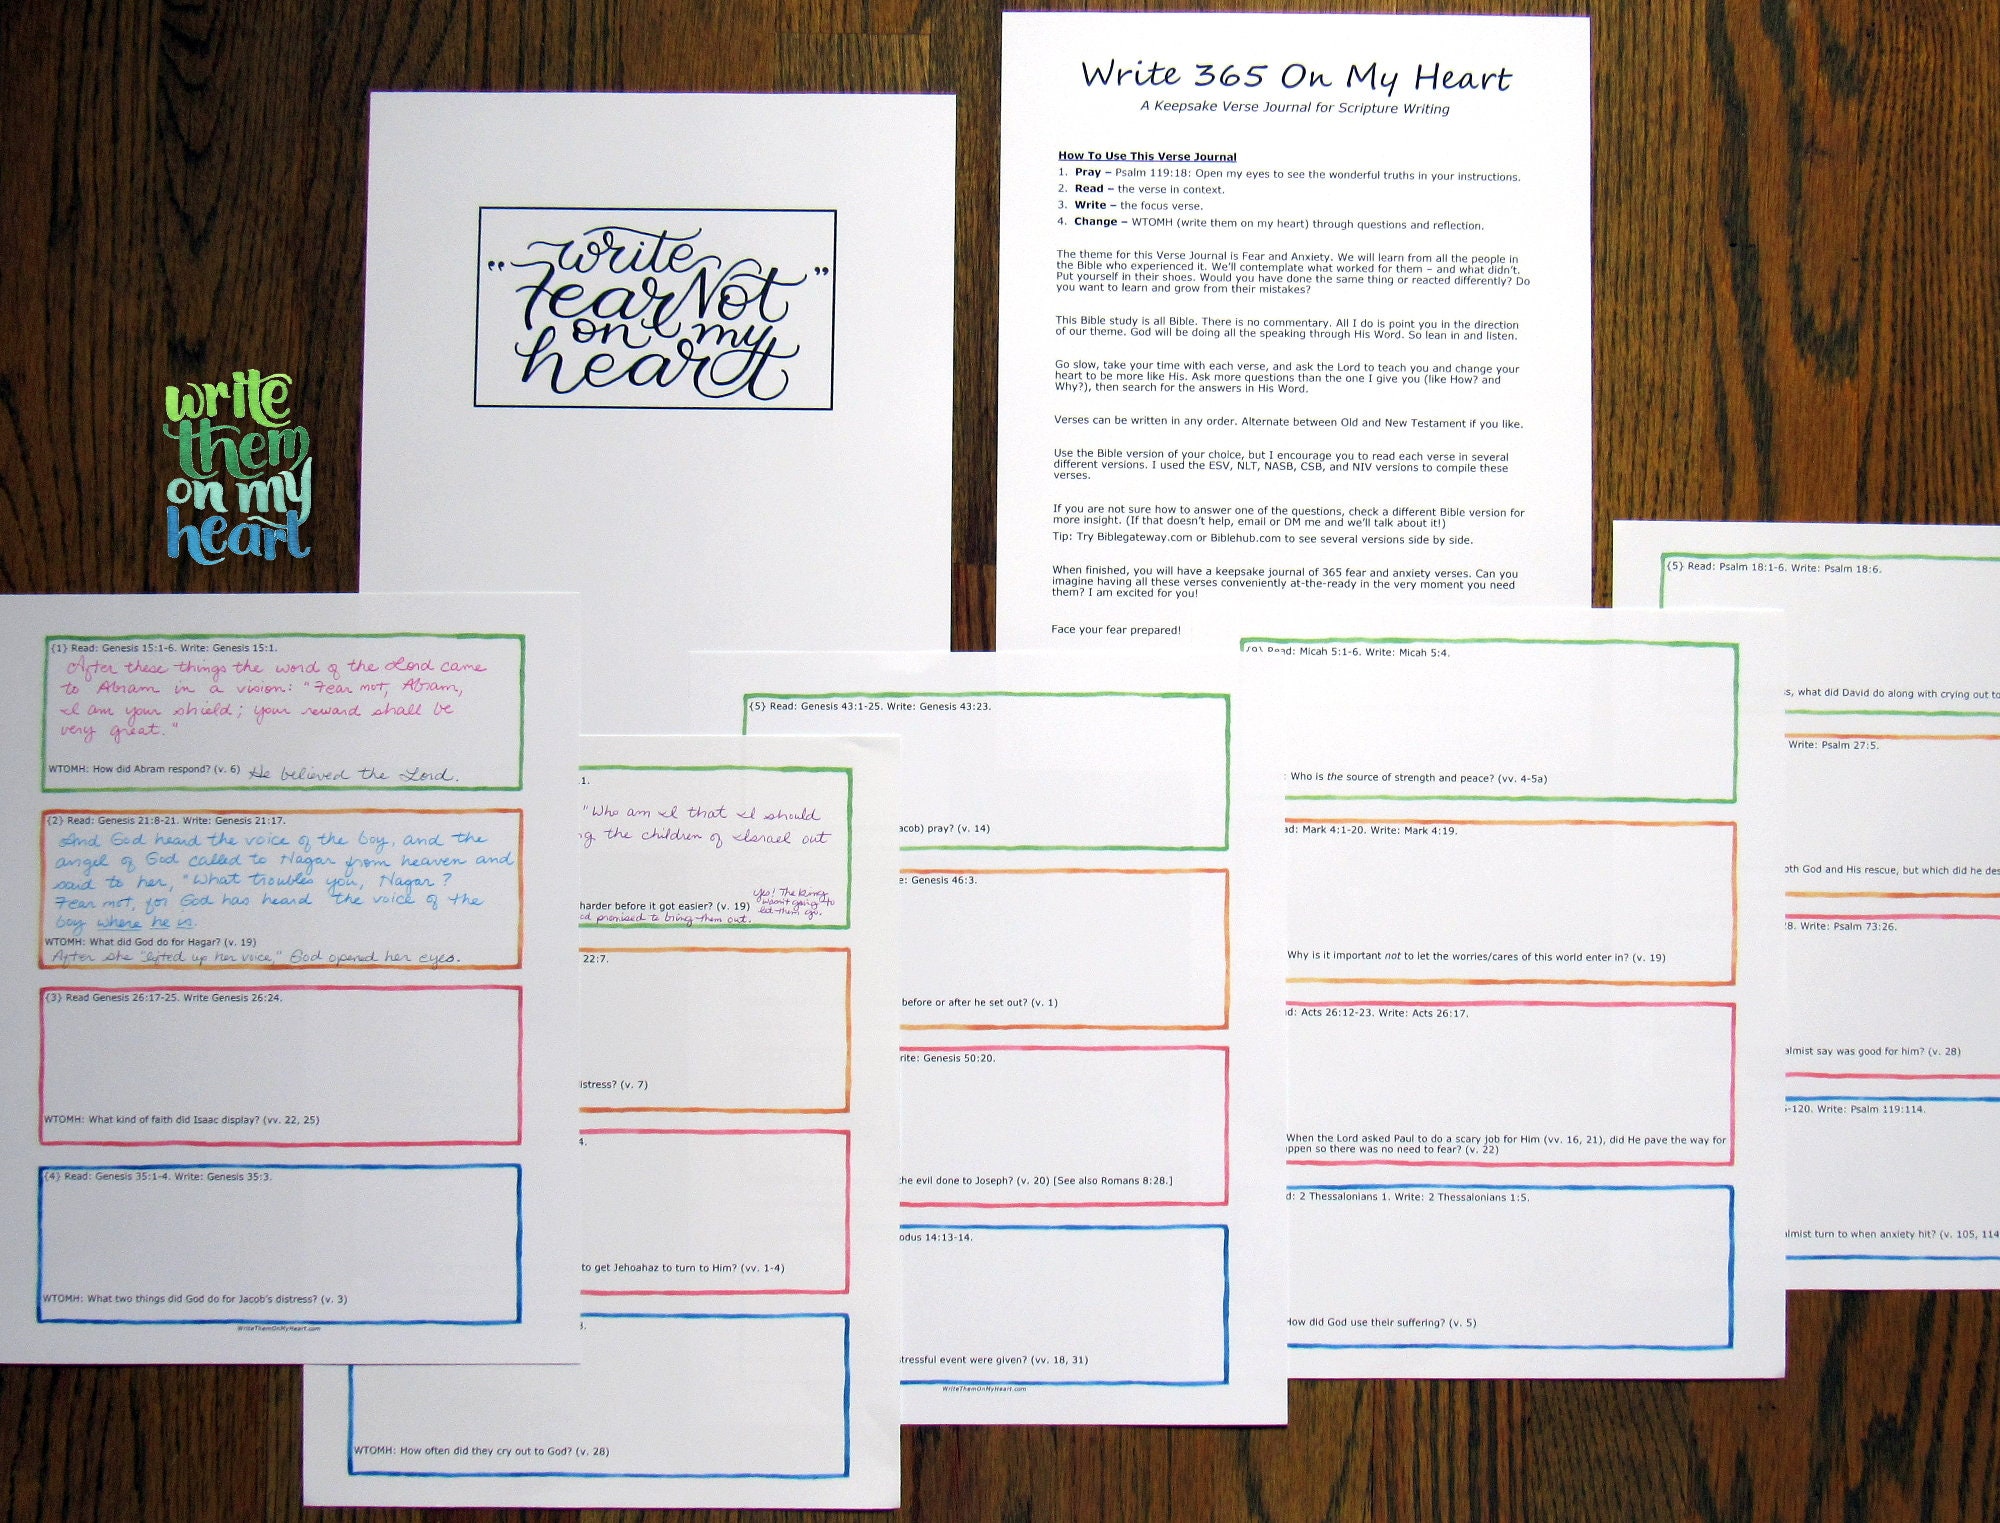 Write 365 On My Heart
A Keepsake Verse Journal for Scripture Writing
How To Use This Verse Journal
1. Pray – Psalm 119:18: Open my eyes to see the wonderful truths in your instructions.
2. Read – the verse in context.
3. Write – the focus verse.
4. Change – WTOMH (write them on my heart) through questions and reflection.
The theme for this Verse Journal is Fear and Anxiety. We will learn from all the people in
the Bible who experienced it. We'll contemplate what worked for them – and what didn't.
Put yourself in their shoes. Would you have done the same thing or reacted differently? Do
you want to learn and grow from their mistakes?
This Bible study is all Bible. There is no commentary. All I do is point you in the direction
of our theme. God will be doing all the speaking through His Word. So lean in and listen.
Go slow, take your time with each verse, and ask the Lord to teach you and change your
heart to be more like His. Ask more questions than the one I give you (like How? and
Why?), then search for the answers in His Word.
Verses can be written in any order. Alternate between Old and New Testament if you like.
Use the Bible version of your choice, but I encourage you to read each verse in several
different versions. I used the ESV, NLT, NASB, CSB, and NIV versions to compile these
verses.
If you are not sure how to answer one of the questions, check a different Bible version for
more insight. (If that doesn't help, email or DM me and we'll talk about it!)
Tip: Try Biblegateway.com or Biblehub.com to see several versions side by side.
When finished, you will have a keepsake journal of 365 fear and anxiety verses. Can you
imagine having all these verses conveniently at-the-ready in the very moment you need
them? I am excited for you!
Face your fear prepared!
write
"Fear Not"
on my
heart
write
them
on my
heart
{1} Read: Genesis 15:1-6. Write: Genesis 15:1.
After these things the word of the Lord came
to Abram in a vision: "Fear not, Abram,
I am your shield; your reward shall be
very great."
WTOMH: How did Abram respond? (v. 6) He believed the Lord.
{2} Read: Genesis 21:8-21. Write: Genesis 21:17.
And God heard the voice of the boy, and the
angel of God called to Hagar from heaven and
said to her, "What troubles you, Hagar?
Fear not, for God has heard the voice of the
boy where he is.
WTOMH: What did God do for Hagar? (v. 19)
After she "lifted up her voice," God opened her eyes.
{3} Read Genesis 26:17-25. Write Genesis 26:24.
WTOMH: What kind of faith did Isaac display? (vv. 22, 25)
{4} Read: Genesis 35:1-4. Write: Genesis 35:3.
WTOMH: What two things did God do for Jacob's distress? (v. 3)
WriteThemOnMyHeart.com
1.
"Who am I that I should
ng the children of Israel out
harder before it got easier? (v. 19) yes! The king
wasn't going to
let them go.
od promised to bring them out.
22:7.
istress? (v. 7)
4.
to get Jehoahaz to turn to Him? (vv. 1-4)
3.
WTOMH: How often did they cry out to God? (v. 28)
{5} Read: Genesis 43:1-25. Write: Genesis 43:23.
acob) pray? (v. 14)
e: Genesis 46:3.
before or after he set out? (v. 1)
rite: Genesis 50:20.
the evil done to Joseph? (v. 20) [See also Romans 8:28.]
odus 14:13-14.
tressful event were given? (vv. 18, 31)
WriteThemOnMyHeart.com
Read: Micah 5:1-6. Write: Micah 5:4.
: Who is the source of strength and peace? (vv. 4-5a)
ad: Mark 4:1-20. Write: Mark 4:19.
Why is it important not to let the worries/cares of this world enter in? (v. 19)
d: Acts 26:12-23. Write: Acts 26:17.
When the Lord asked Paul to do a scary job for Him (vv. 16, 21), did He pave the way for
ppen so there was no need to fear? (v. 22)
d: 2 Thessalonians 1. Write: 2 Thessalonians 1:5.
How did God use their suffering? (v. 5)
{5} Read: Psalm 18:1-6. Write: Psalm 18:6.
s, what did David do along with crying out to
Write: Psalm 27:5.
oth God and His rescue, but which did he des
28. Write: Psalm 73:26.
almist say was good for him? (v. 28)
-120. Write: Psalm 119:114.
almist turn to when anxiety hit? (v. 105, 114